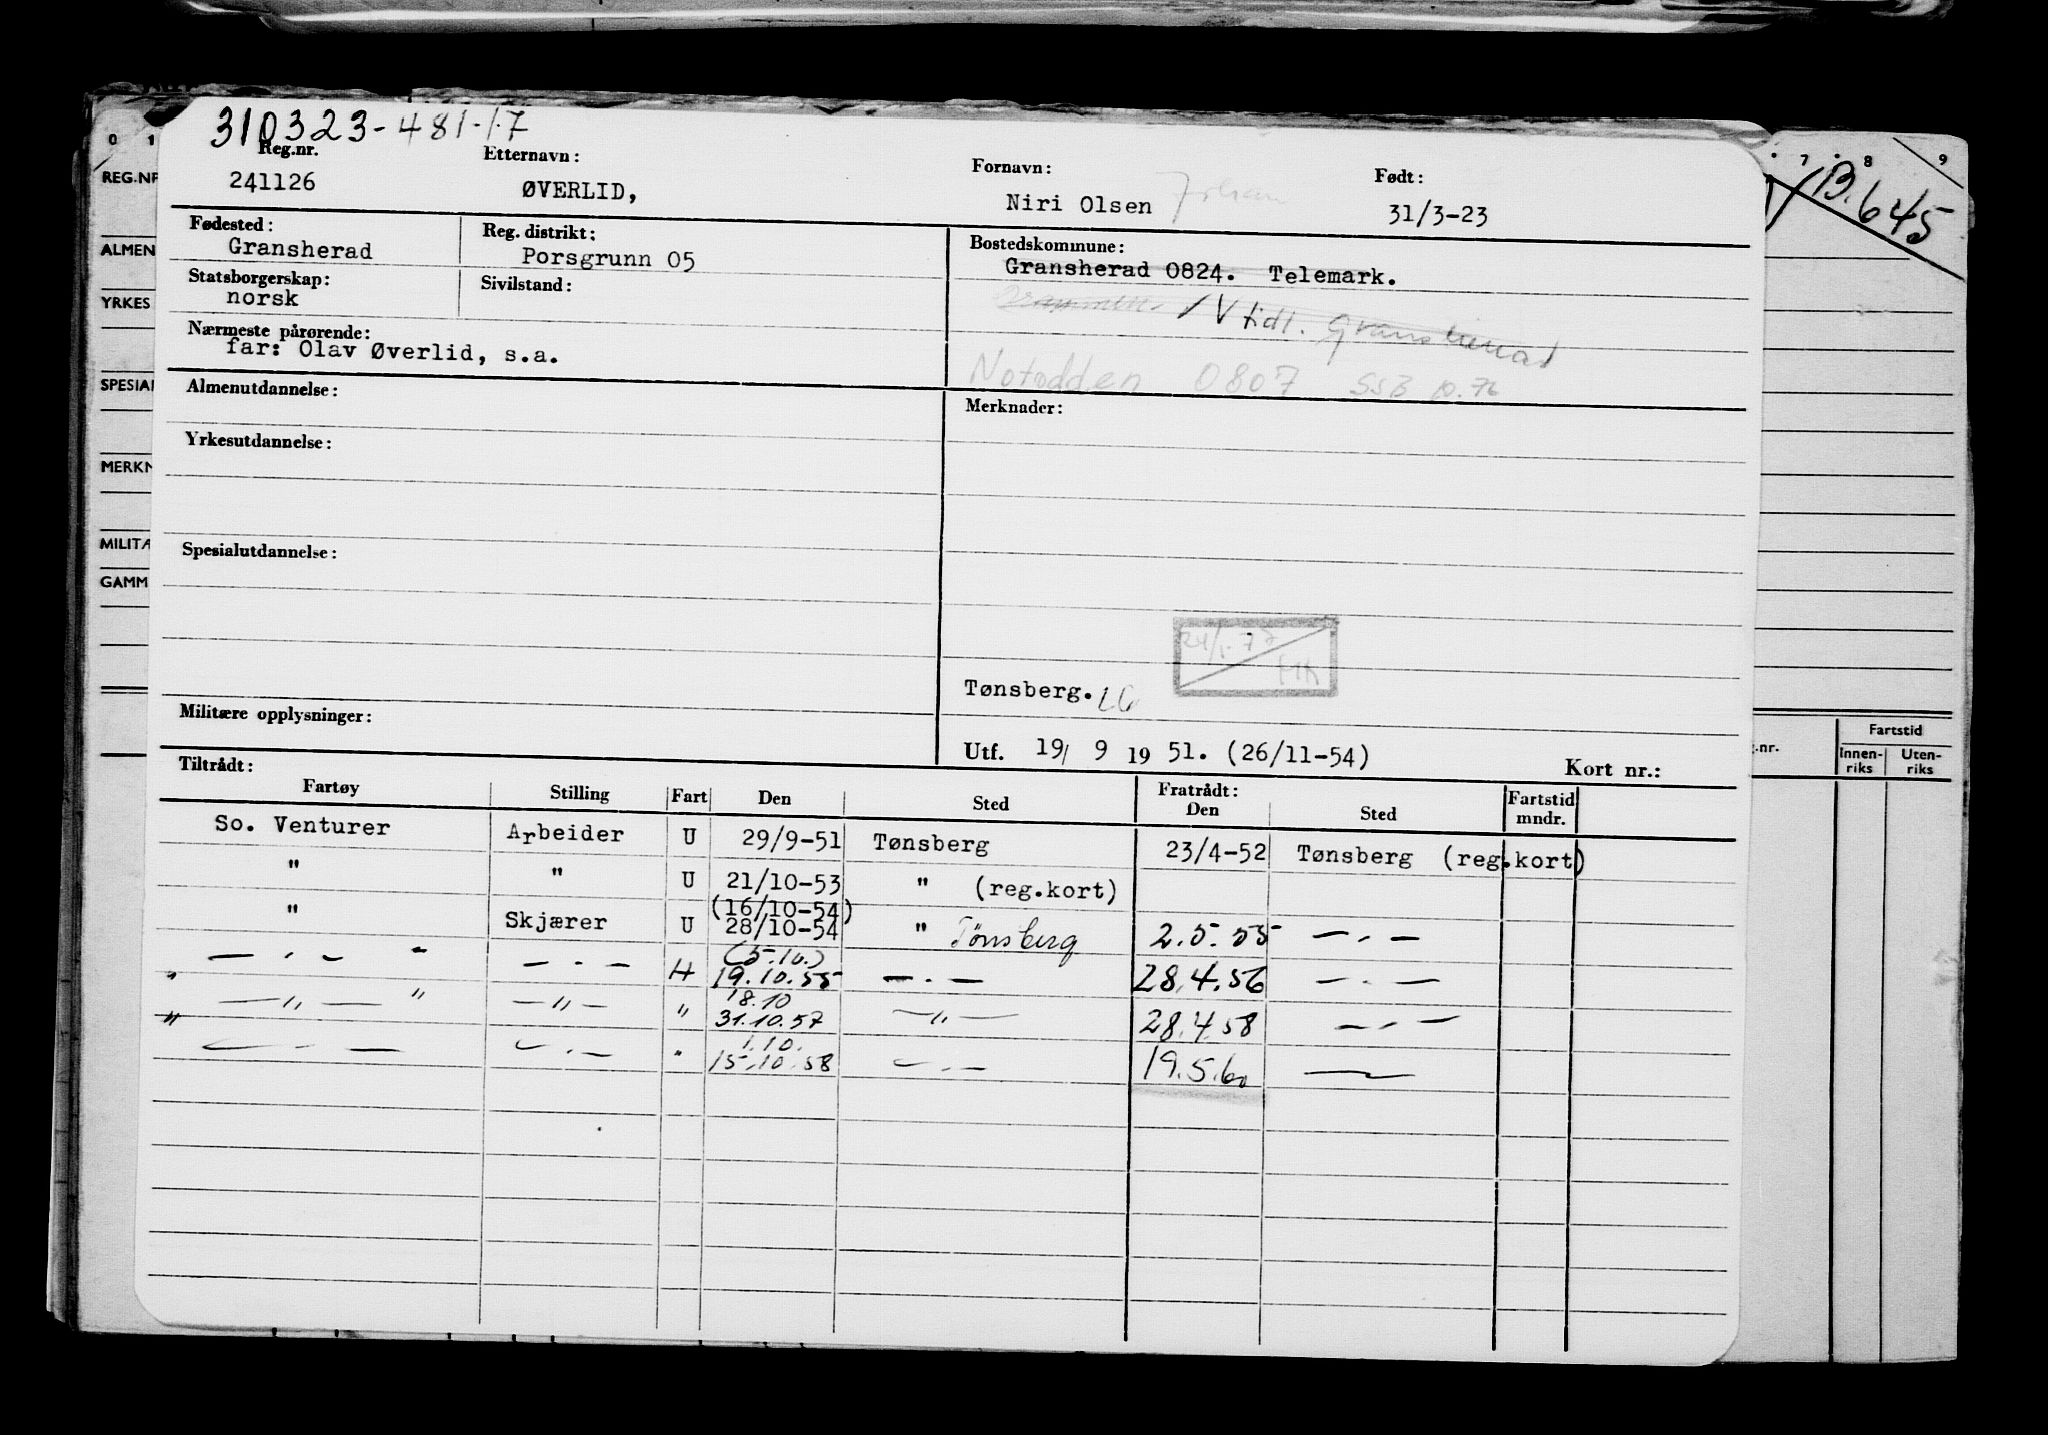 310323-481-17
Reg.nr. Etternavn: Fornavn: Født:
241126 ØVERLID, Niri Olsen 31/3-23
Fødested: Reg. distrikt: Bostedskommune:
Gransherad Porsgrunn 05 Gransherad 0824. Telemark.
Statsborgerskap: Sivilstand:
norsk
tidl. Gransherad
Nærmeste pårørende:
far: Olav Øverlid, s.a.
Notodden 0807 SSB 10.76
Almenutdannelse: Merknader:
Yrkesutdannelse:
Spesialutdannelse:
24/1-77
HK
Tønsberg. LG
Militære opplysninger:
Utf. 19/ 9 19 51. (26/11-54) Kort nr.:
Tiltrådt: Fratrådt:
Fartøy Stilling Fart Den Sted Den Sted Fartstid mndr.
So. Venturer Arbeider U 29/9-51 Tønsberg 23/4-52 Tønsberg (reg.kort)
" " U 21/10-53 " (reg.kort)
(16/10-54)
" Skjærer U 28/10-54 " Tønsberg 2.5.55 — . —
(5.10.)
— . — " — . — H 19.10.55 — . — 28.4.56 — . —
18.10
" — " — " — " — " 31.10.57 — " — 28.4.58 — . —
1.10.
" — . — — . — " 15.10.58 — . — 19.5.60 —
0 1 7 8 9
B.645
REG.NR
ALMEN
YRKES
SPESIAL
MERKN
MILITÆ
GAMM
Fartstid
.nr. Innen-riks Uten-riks